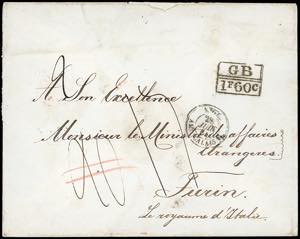 GB
1F60c
A Son Excellence
Monsieur le Ministre des affaires
étrangères
Turin.
Le royaume d'Italie.
ANGL.
CALAIS